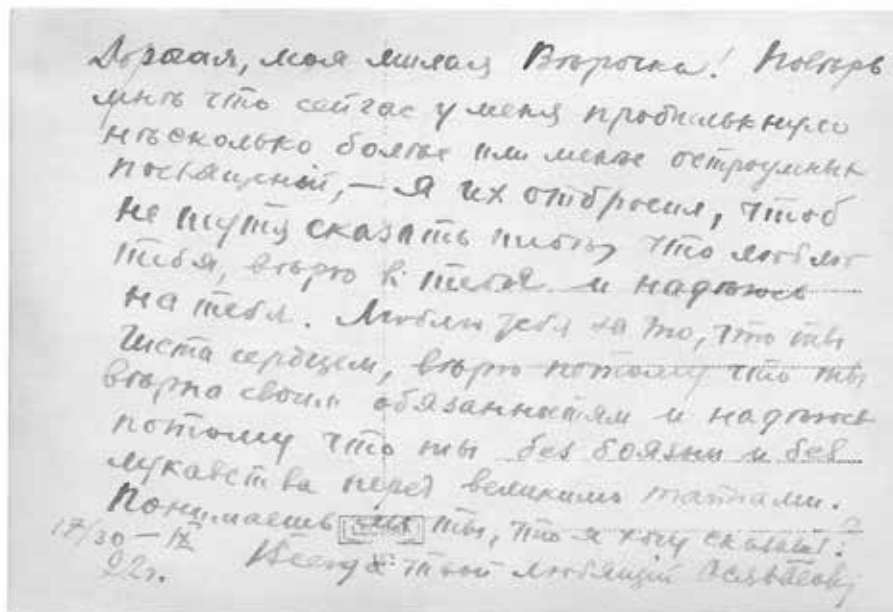 Дорогая, моя милая Вѣрочка! Повѣрь
мнѣ что сейчас у меня промелькнуло
нѣсколько болѣе или менѣе остроумных
посвящений, — я их отбросил, чтоб
не шутя сказать тебѣ, что люблю
тебя, вѣрю в тебя и надѣюсь
на тебя. Люблю тебя за то, что ты
чиста сердцем, вѣрю потому что ты
вѣрна своим обязанностям и надѣюсь
потому что ты без боязни и без
лукавства перед великими тайнами.
Понимаешь ли ты, что я хочу сказать?
17/30 — IX
22г. Всегда твой любящий